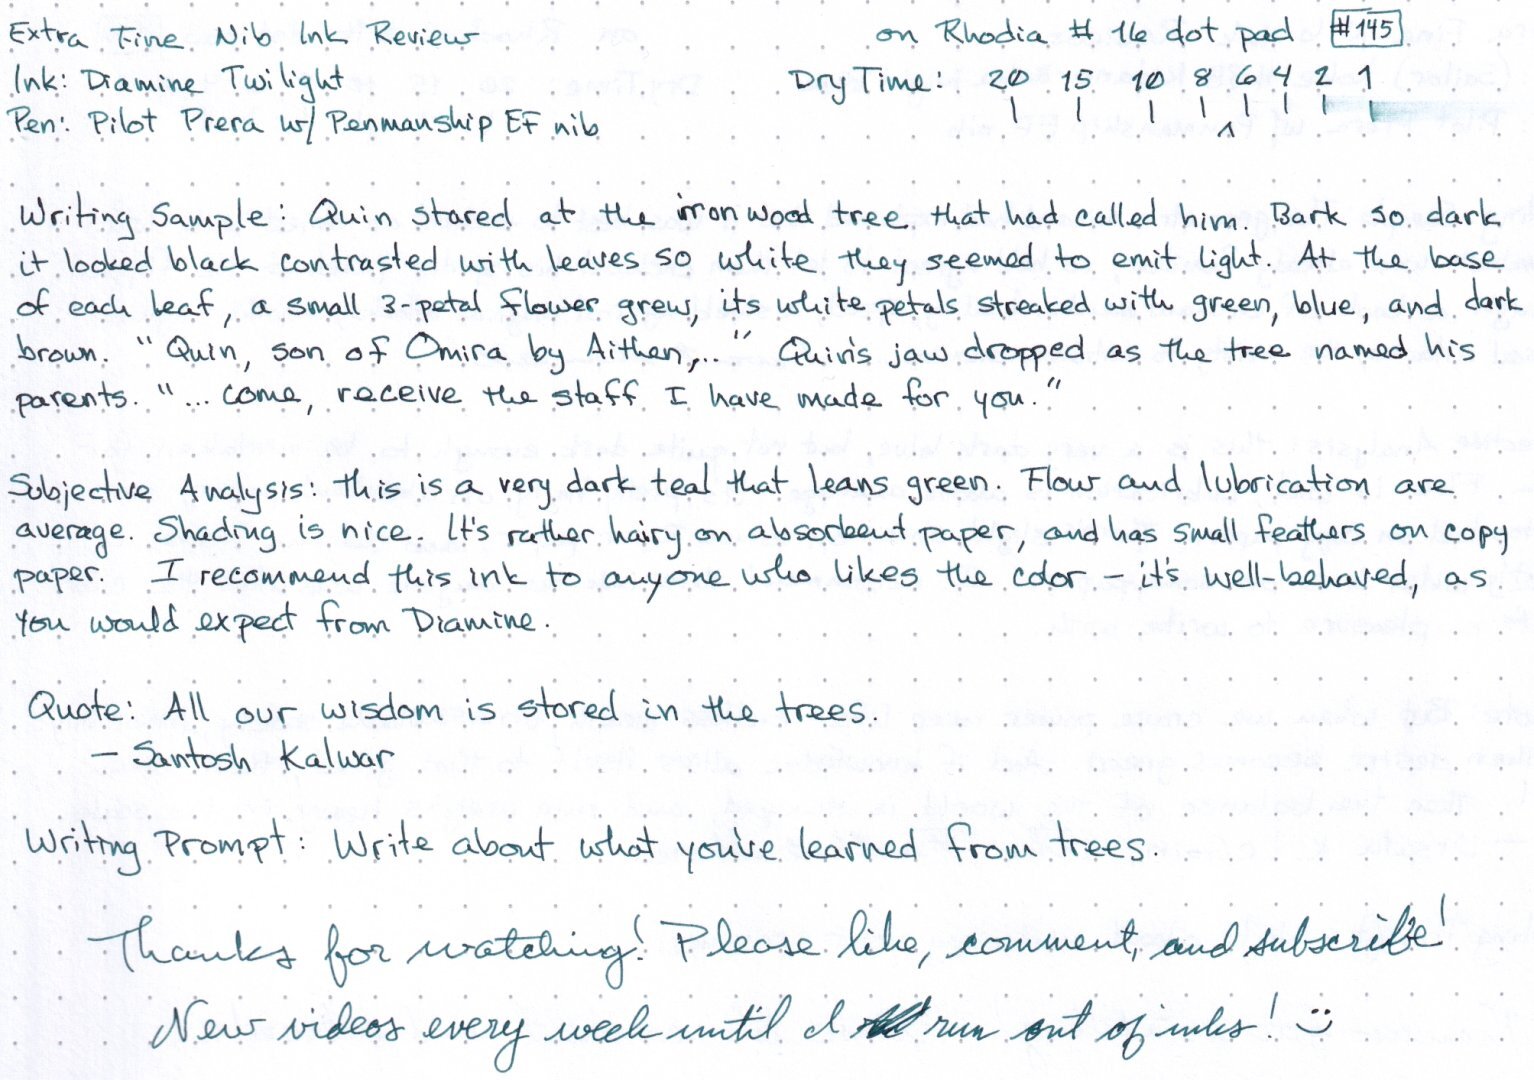 Extra Fine Nib Ink Review on Rhodia #16 dot pad #145
Ink: Diamine Twilight Dry Time: 20 15 10 8 6 4 2 1
Pen: Pilot Prera w/ Penmanship EF nib
Writing Sample: Quin stared at the iron wood tree that had called him. Bark so dark
it looked black contrasted with leaves so white they seemed to emit light. At the base
of each leaf, a small 3-petal flower grew, its white petals streaked with green, blue, and dark
brown. "Quin, son of Omira by Aithen,..." Quin's jaw dropped as the tree named his
parents. "... come, receive the staff I have made for you."
Subjective Analysis: this is a very dark teal that leans green. Flow and lubrication are
average. Shading is nice. It's rather hairy on absorbent paper, and has small feathers on copy
paper. I recommend this ink to anyone who likes the color – it's well-behaved, as
you would expect from Diamine.
Quote: All our wisdom is stored in the trees.
– Santosh Kalwar
Writing Prompt: Write about what you've learned from trees.
Thanks for watching! Please like, comment, and subscribe!
New videos every week until I run out of inks! :)